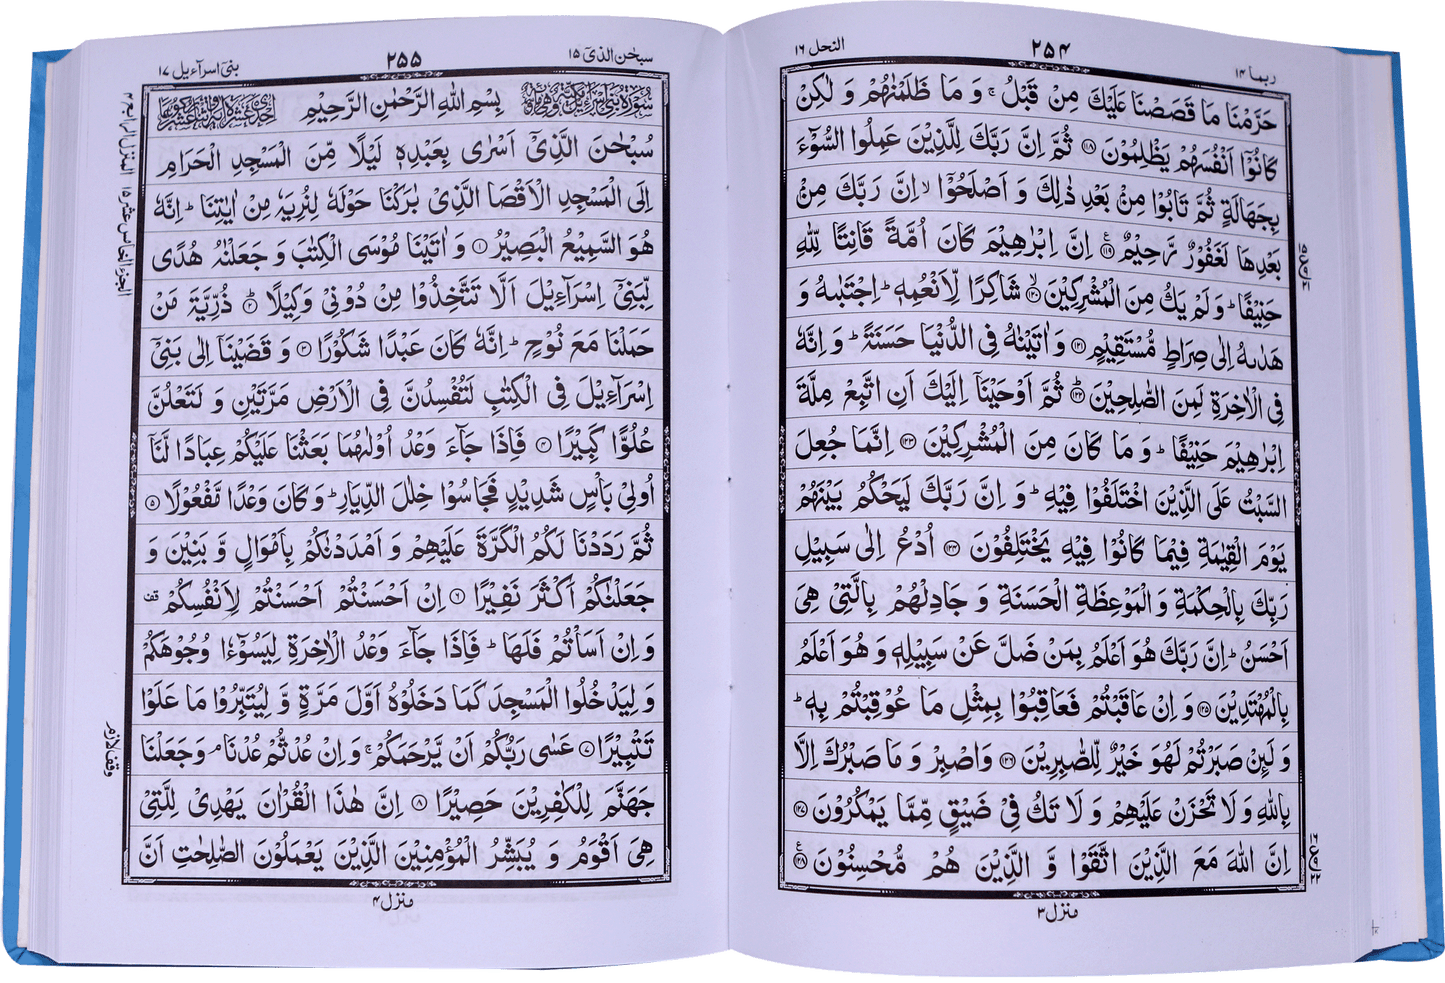 ربما ۱۴
۲۵۴
النحل ۱۶
حَرَّمْنَا مَا قَصَصْنَا عَلَيْكَ مِنْ قَبْلُ ۚ وَ مَا ظَلَمْنٰهُمْ وَ لٰكِنْ
كَانُوْٓا اَنْفُسَهُمْ يَظْلِمُوْنَ ۝۱۱۸ ثُمَّ اِنَّ رَبَّكَ لِلَّذِيْنَ عَمِلُوا السُّوْٓءَ
بِجَهَالَةٍ ثُمَّ تَابُوْا مِنْۢ بَعْدِ ذٰلِكَ وَ اَصْلَحُوْٓا ۙ اِنَّ رَبَّكَ مِنْۢ
بَعْدِهَا لَغَفُوْرٌ رَّحِيْمٌ ۝۱۱۹ اِنَّ اِبْرٰهِيْمَ كَانَ اُمَّةً قَانِتًا لِّلّٰهِ
حَنِيْفًا ؕ وَ لَمْ يَكُ مِنَ الْمُشْرِكِيْنَ ۝۱۲۰ شَاكِرًا لِّاَنْعُمِهٖ ؕ اِجْتَبٰىهُ وَ
هَدٰىهُ اِلٰى صِرَاطٍ مُّسْتَقِيْمٍ ۝۱۲۱ وَ اٰتَيْنٰهُ فِى الدُّنْيَا حَسَنَةً ؕ وَ اِنَّهٗ
فِى الْاٰخِرَةِ لَمِنَ الصّٰلِحِيْنَ ۝۱۲۲ ثُمَّ اَوْحَيْنَآ اِلَيْكَ اَنِ اتَّبِعْ مِلَّةَ
اِبْرٰهِيْمَ حَنِيْفًا ؕ وَ مَا كَانَ مِنَ الْمُشْرِكِيْنَ ۝۱۲۳ اِنَّمَا جُعِلَ
السَّبْتُ عَلَى الَّذِيْنَ اخْتَلَفُوْا فِيْهِ ؕ وَ اِنَّ رَبَّكَ لَيَحْكُمُ بَيْنَهُمْ
يَوْمَ الْقِيٰمَةِ فِيْمَا كَانُوْا فِيْهِ يَخْتَلِفُوْنَ ۝۱۲۴ اُدْعُ اِلٰى سَبِيْلِ
رَبِّكَ بِالْحِكْمَةِ وَ الْمَوْعِظَةِ الْحَسَنَةِ وَ جَادِلْهُمْ بِالَّتِيْ هِيَ
اَحْسَنُ ؕ اِنَّ رَبَّكَ هُوَ اَعْلَمُ بِمَنْ ضَلَّ عَنْ سَبِيْلِهٖ وَ هُوَ اَعْلَمُ
بِالْمُهْتَدِيْنَ ۝۱۲۵ وَ اِنْ عَاقَبْتُمْ فَعَاقِبُوْا بِمِثْلِ مَا عُوْقِبْتُمْ بِهٖ ؕ
وَ لَىِٕنْ صَبَرْتُمْ لَهُوَ خَيْرٌ لِّلصّٰبِرِيْنَ ۝۱۲۶ وَاصْبِرْ وَ مَا صَبْرُكَ اِلَّا
بِاللّٰهِ وَ لَا تَحْزَنْ عَلَيْهِمْ وَ لَا تَكُ فِيْ ضَيْقٍ مِّمَّا يَمْكُرُوْنَ ۝۱۲۷
اِنَّ اللّٰهَ مَعَ الَّذِيْنَ اتَّقَوْا وَّ الَّذِيْنَ هُمْ مُّحْسِنُوْنَ ۝۱۲۸
منزل ۳
سبحٰن الذیٓ ۱۵
۲۵۵
بنیٓ اسرآءیل ۱۷
بِسْمِ اللّٰهِ الرَّحْمٰنِ الرَّحِيْمِ
سُبْحٰنَ الَّذِيْٓ اَسْرٰى بِعَبْدِهٖ لَيْلًا مِّنَ الْمَسْجِدِ الْحَرَامِ
اِلَى الْمَسْجِدِ الْاَقْصَا الَّذِيْ بٰرَكْنَا حَوْلَهٗ لِنُرِيَهٗ مِنْ اٰيٰتِنَا ؕ اِنَّهٗ
هُوَ السَّمِيْعُ الْبَصِيْرُ ۝۱ وَ اٰتَيْنَا مُوْسَى الْكِتٰبَ وَ جَعَلْنٰهُ هُدًى
لِّبَنِيْٓ اِسْرَآءِيْلَ اَلَّا تَتَّخِذُوْا مِنْ دُوْنِيْ وَكِيْلًا ۝۲ ذُرِّيَّةَ مَنْ
حَمَلْنَا مَعَ نُوْحٍ ؕ اِنَّهٗ كَانَ عَبْدًا شَكُوْرًا ۝۳ وَ قَضَيْنَآ اِلٰى بَنِيْٓ
اِسْرَآءِيْلَ فِى الْكِتٰبِ لَتُفْسِدُنَّ فِى الْاَرْضِ مَرَّتَيْنِ وَ لَتَعْلُنَّ
عُلُوًّا كَبِيْرًا ۝۴ فَاِذَا جَآءَ وَعْدُ اُوْلٰىهُمَا بَعَثْنَا عَلَيْكُمْ عِبَادًا لَّنَآ
اُولِيْ بَاْسٍ شَدِيْدٍ فَجَاسُوْا خِلٰلَ الدِّيَارِ ؕ وَ كَانَ وَعْدًا مَّفْعُوْلًا ۝۵
ثُمَّ رَدَدْنَا لَكُمُ الْكَرَّةَ عَلَيْهِمْ وَ اَمْدَدْنٰكُمْ بِاَمْوَالٍ وَّ بَنِيْنَ وَ
جَعَلْنٰكُمْ اَكْثَرَ نَفِيْرًا ۝۶ اِنْ اَحْسَنْتُمْ اَحْسَنْتُمْ لِاَنْفُسِكُمْ قف
وَ اِنْ اَسَاْتُمْ فَلَهَا ؕ فَاِذَا جَآءَ وَعْدُ الْاٰخِرَةِ لِيَسُوْٓءٗا وُجُوْهَكُمْ
وَ لِيَدْخُلُوا الْمَسْجِدَ كَمَا دَخَلُوْهُ اَوَّلَ مَرَّةٍ وَّ لِيُتَبِّرُوْا مَا عَلَوْا
تَتْبِيْرًا ۝۷ عَسٰى رَبُّكُمْ اَنْ يَّرْحَمَكُمْ ۚ وَ اِنْ عُدْتُّمْ عُدْنَا ۘ وَ جَعَلْنَا
جَهَنَّمَ لِلْكٰفِرِيْنَ حَصِيْرًا ۝۸ اِنَّ هٰذَا الْقُرْاٰنَ يَهْدِيْ لِلَّتِيْ
هِيَ اَقْوَمُ وَ يُبَشِّرُ الْمُؤْمِنِيْنَ الَّذِيْنَ يَعْمَلُوْنَ الصّٰلِحٰتِ اَنَّ
وقف لازم
منزل ۴